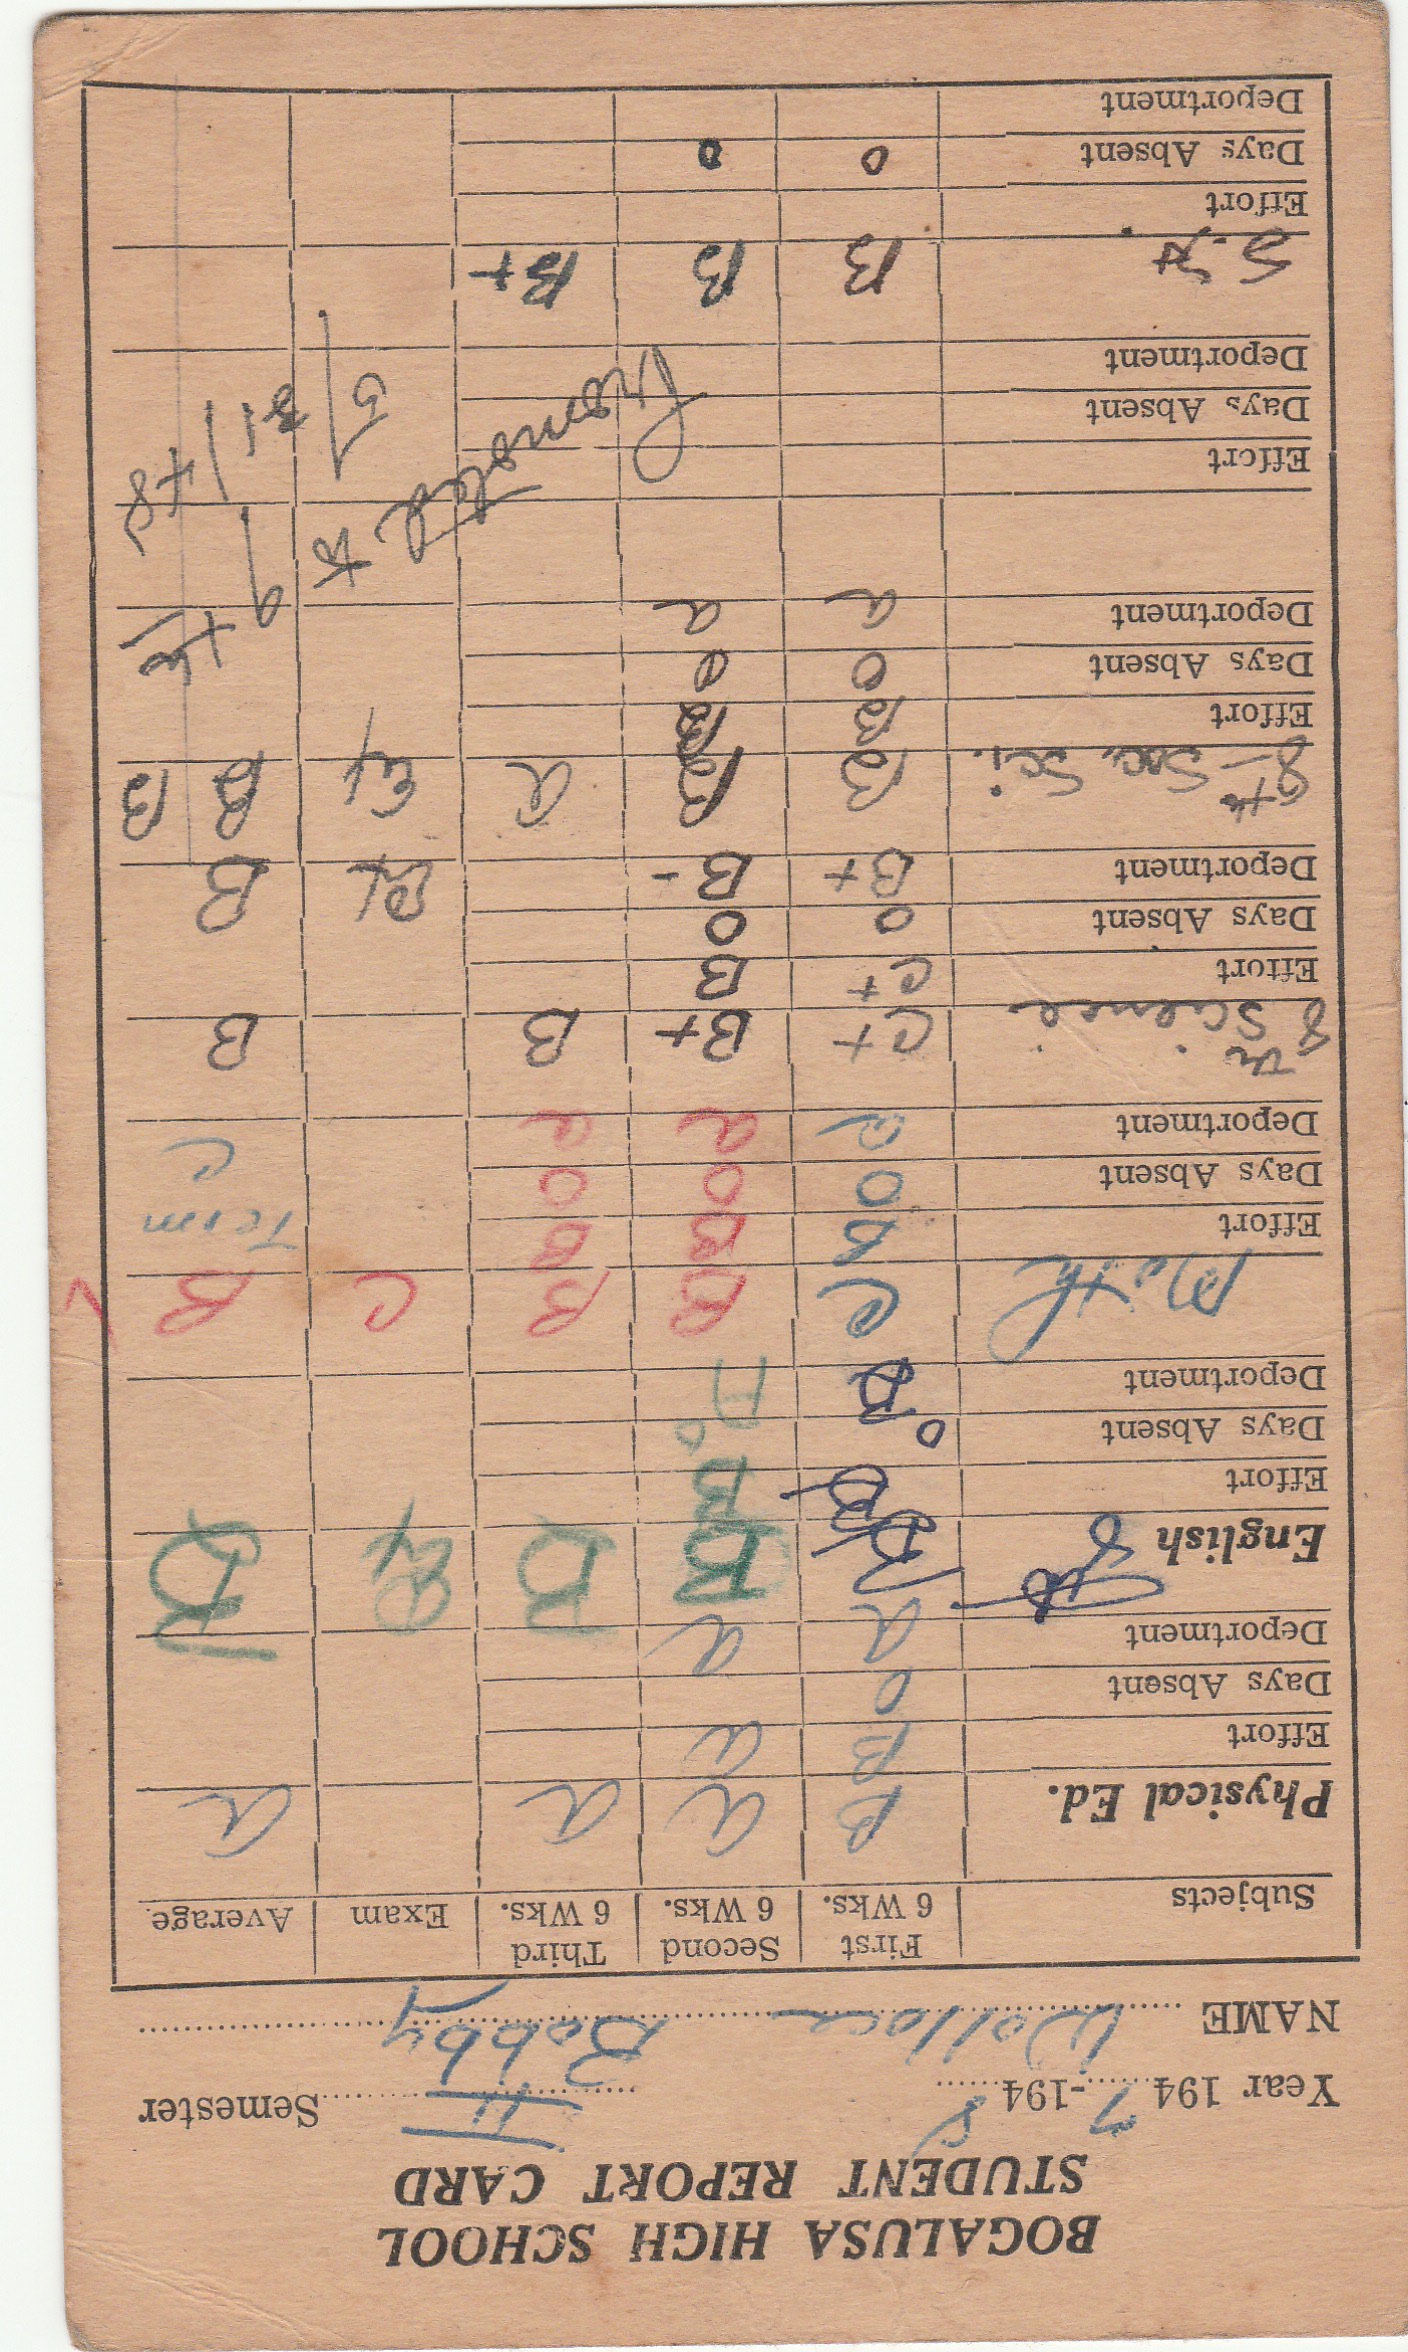 BOGALUSA HIGH SCHOOL
STUDENT REPORT CARD
Year 1947-1948 II Semester
NAME Wallace Bobby
Subjects First 6 Wks. Second 6 Wks. Third 6 Wks. Exam Average
Physical Ed. B A A A
Effort B A
Days Absent 0
Deportment A A
English 8th B B B Ex B
Effort B B
Days Absent 0 0
Deportment B A
Math C B B C B
Effort B B B Term
Days Absent 0 0 0 C
Deportment a a a
8th Science C+ B+ B B
Effort C+ B
Days Absent 0 0
Deportment B+ B- Ex B
8th Soc. Sci. B B A Ex B B
Effort B B
Days Absent 0 0
Deportment a a
Promoted to 9th
5/31/48
Effort
Days Absent
Deportment
S.H. B B B+
Effort
Days Absent 0 0
Deportment